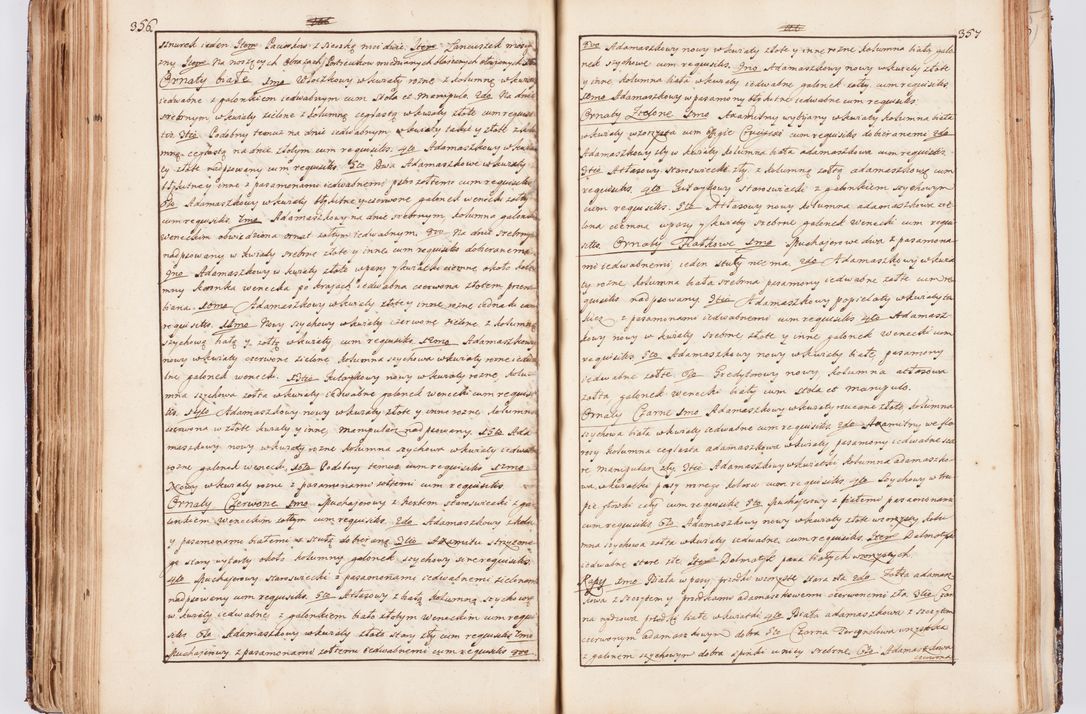 356
sznurek ieden Item Paciorków z sieczką mosiądzu, Item Łancuszek mosię
zny Item Na noszących Obrazach
Ornaty białe 1mo Włoczkowy w kwiaty rozne z kolumną w kwiaty
iedwabne z galonkiem iedwabnym cum Stola et Manipulo. 2do Na dnie
srebrnym w kwiaty zielone z kolumną ceglastą w kwiaty złote cum requisi
tis. 3tio Podobny temuz na dnie iedwabnym w kwiaty takież y złote z kolu
mną ceglastą na dnie złotym cum requisitis. 4to Adamaszkowy w kwia
ty złote nadpsowany cum requisitis. 5to Dwa Adamaszkowe w kwiaty
błękitne y inne z pasamonami iedwabnemi pstro żołtemi cum requisitis
6to Adamaszkowy w kwiaty błękitne y czerwone galonek wenecki żołty
cum requisitis. 7mo Adamaszkowy na dnie srebrnym, kolumna galonem
weneckim obwiedziona ornat żołtym iedwabnym. 8vo Na dnie srebrny
nadpsowany w kwiaty srebrne złote y inne cum requisitis dobieranemi
9no Adamaszkowy w kwiaty złote w pasy y kwiatki ciemne około kolu
mny koronka wenecka po kraiach iedwabna czerwona złotem przera
biana. 10mo Adamaszkowy w kwiaty złote y inne rozne cum
requisitis. 11mo Nowy szychowy w kwiaty czerwone zielone z kolumną
szychową białą y żołtą w kwiaty cum requisitis 12mo Adamaszkowy
nowy w kwiaty czerwone zielone kolumna szychowa w kwiaty rozne iedwa
bne galonek wenecki. 13tio Kitaykowy nowy w kwiaty rozne, kolu
mna szychowa żołta w kwiaty iedwabne galonek wenecki cum requisi
tis. 14to Adamaszkowy nowy w kwiaty złote y inne rozne kolumna
czerwona w złote kwiaty y inne, manipularz nadpsowany. 15to Ada
maszkowy nowy w kwiaty rozne kolumna szychowa w kwiaty iedwa
rozne galonek wenecki. 16to Podobny temuz cum requisitis 17mo
Nowy w kwiaty rozne z pasamonami żołtemi cum requisitis.
Ornaty Czerwone 1mo Muchajerowy z herbem staroswiecki z ga
lonkiem weneckim żołtym cum requisitis. 2do Adamaszkowy z kolu
y pasamonami białemi w stułę dobieraną 3tio Axamitu strzyżone
go stary wytarty około kolumny galonek szychowy sine requisitis.
4to Muchajerowy staroswiecki z pasamonami iedwabnemi zielonemi
nadpsowany cum requisitis. 5to Atłasowy z białą kolumną szychową
w kwiaty iedwabne z galonkiem biało złotym weneckim cum requi
sitis 6to Adamaszkowy w kwiaty złote stary zły cum requisitis 7mo
Muchajerowy z pasamonami żołtemi iedwabnemi cum requisitis 8vo
357
8vo Adamaszkowy nowy w kwiaty złote y inne rozne kolumna biała galo
nek szychowy cum requisitis. 9no Adamaszkowy nowy w kwiaty złote
y inne kolumna biała w kwiaty iedwabne galonek żołty cum requisitis
10mo Adamaszkowy w pasamony błękitne iedwabne cum requisitis.
Ornaty Zielone 1mo Axamitny wybijany w kwiaty kolumna biała
w kwiaty cum requisitis dobieranemi 2do
Adamaszkowy zły w kwiaty kolumna biała adamaszkowa cum requisitis.
3tio Atłasowy staroswiecki zły, z kolumną żołtą adamaszkową cum
requisitis 4to Kitaykowy staroswiecki z galonkiem szychowym
cum requisitis. 5to Atłasowy nowy kolumna adamaszkowa zie
lona ciemna w pasy y kwiaty srebrne galonek Wenecki cum requi
sitis. Ornaty Fiałkowe 1mo Muchajerowe dwa z pasamona
mi iedwabnemi ieden stuły nie ma. 2do Adamaszkowy w kwia
ty rozne kolumna biała srebrna pasamony iedwabne żołte cum re
quisitis nadpsowany 3tio Adamaszkowy popielaty w kwiaty ta
kież z pasaminami iedwabnemi cum requisitis 4to Adamasz
kowy nowy w kwiaty srebrne złote y inne galonek wenecki cum
requisitis 5to Adamaszkowy nowy w kwiaty białe, pasamony
iedwabne żołte 6to Gredytorowy nowy, kolumna atłasowa
żołta galonek wenecki biały cum stola et manipulo.
Ornaty Czarne 1mo Adamaszkowy w kwiaty rzucane złote, kolumna
szychowa biała w kwiaty iedwabne cum requisitis 2do Axamitny we flo
resy kolumna ceglasta adamaszkowa w kwiaty, pasamony iedwabne sza
re manipularz zły. 3tio Adamaszkowy w kwiatki kolumna adamaszko
wa w kwiatki pasy innego koloru cum requisitis 4to Szychowy w tru
pie głowki cały cum requisitis. 5to Muchajerowy z białemi pasamonami
cum requisitis 6to Adamaszkowy nowy w kwiaty złote wzorzysty kolu
mna szychowa żołta w kwiaty iedwabne, cum requisitis. Item Dalmatyk
iedwabne stare złe. Item Dalmatyk para białych wzorzystych.
Kapy 1mo Biała w pasy przodki wzorzyste stara zła 2do Żołta adamasz
kowa z szczytem y przodkami adamaszkowemi czerwonemi zła 3tio
na nydrowa przodki białe w kwiatki 4to Biała adamaszkowa z szczytem
czerwonym adamaszkowym dobra 5to Czarna wezyska
z galonem szychowym dobra spinki u niey srebrne, 6to Adamaszkowa
czerwona